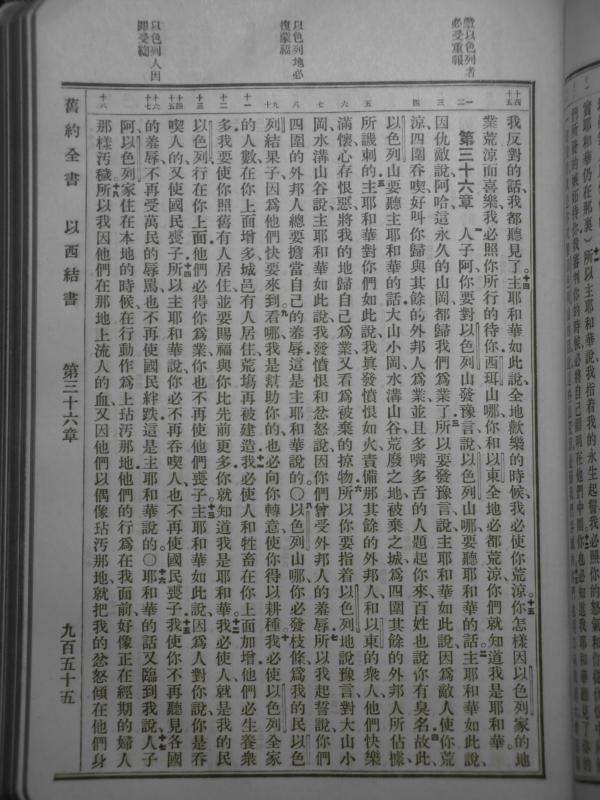 以色列者
必受重報
以色列地必
復蒙福
以色列人因
罪受
我反對的話我都聽見了主耶和華如此說全地歡樂的時候我必使你荒涼你怎樣因以色列家的地
業荒涼而喜樂我必照你所行的待你西珥山哪你和以東全地必都荒涼你們就知道我是耶和華
第三十六章 人子阿你要對以色列山發豫言說以色列山哪要聽耶和華的話主耶和華如此說
因仇敵說阿哈這永久的山岡都歸我們爲業了所以要發豫言說主耶和華如此說因爲敵人使你荒
涼四圍吞喫好叫你歸與其餘的外邦人爲業並且多嘴多舌的人題起你來百姓也說你有臭名故此
以色列山要聽主耶和華的話大山小岡水溝山谷荒廢之地被棄之城爲四圍其餘的外邦人所佔據
所譏刺的主耶和華對你們如此說我真發憤恨如火責備那其餘的外邦人和以東的衆人他們快樂
滿懷心存恨惡將我的地歸自己爲業又看爲被棄的掠物所以你要指着以色列地說豫言對大山小
岡水溝山谷說主耶和華如此說我發憤恨和忿怒說因你們曾受外邦人的羞辱所以我起誓說你們
四圍的外邦人總要擔當自己的羞辱這是主耶和華說的○以色列山哪你必發枝條爲我的民以色
列結果子因爲他們快要來到看哪我是幫助你的也必向你轉意使你得以耕種我必使以色列全家
的人數在你上面增多城邑有人居住荒場再被建造我必使人和牲畜在你上面加增他們必生養衆
多我要使你照舊有人居住並要賜福與你比先前更多你就知道我是耶和華我必使人就是我的民
以色列行在你上面他們必得你爲業你也不再使他們喪子主耶和華如此說因爲人對你說你是吞
喫人的又使國民喪子所以主耶和華說你必不再吞喫人也不再使國民喪子我使你不再聽見各國
的羞辱不再受萬民的辱罵也不再使國民絆跌這是主耶和華說的○耶和華的話又臨到我說人子
阿以色列家住在本地的時候在行動作爲上玷污那地他們的行爲在我面前好像正在經期的婦人
那樣污穢所以我因他們在那地上流人的血又因他們以偶像玷污那地就把我的忿怒傾在他們身
舊約全書 以西結書 第三十六章 九百五十五